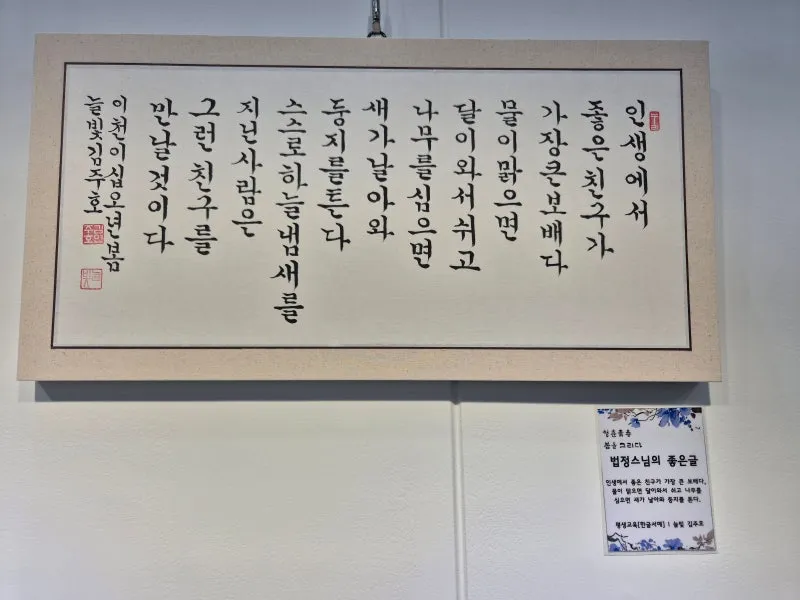 인생에서
좋은친구가
가장큰보배다
물이맑으면
달이와서쉬고
나무를심으면
새가날아와
둥지를튼다
스스로하늘냄새를
지닌사람은
그런친구를
만날것이다
이천이십오년봄
늘빛김주호
봄을 그리다
법정스님의 좋은글
인생에서 좋은 친구가 가장 큰 보배다.
물이 맑으면 달이와서 쉬고 나무를
심으면 새가 날아와 둥지를 튼다.
평생교육[한글서예] I 늘빛 김주호